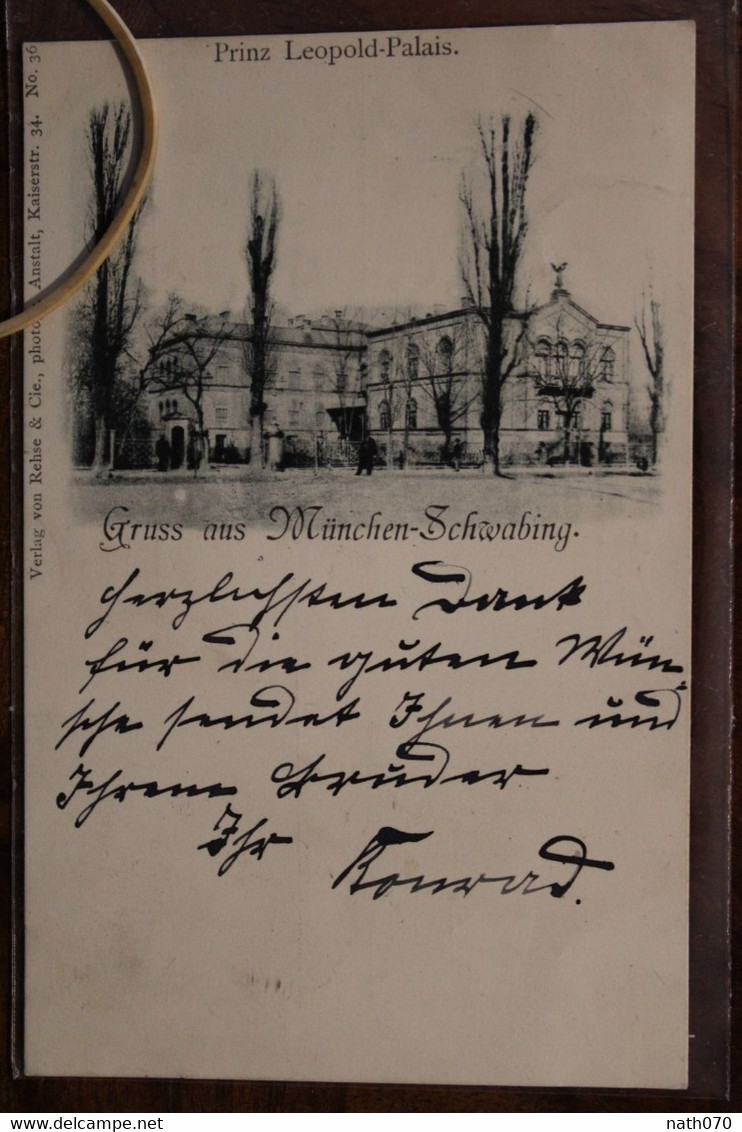 Prinz Leopold-Palais.
Verlag von Rehse & Cie., photo. Anstalt, Kaiserstr. 34. No. 36
Gruss aus München-Schwabing.
Herzlichsten Dank
für die guten Wün-
sche sendet Ihnen und
Ihrem Bruder
Ihr Konrad.
nath070